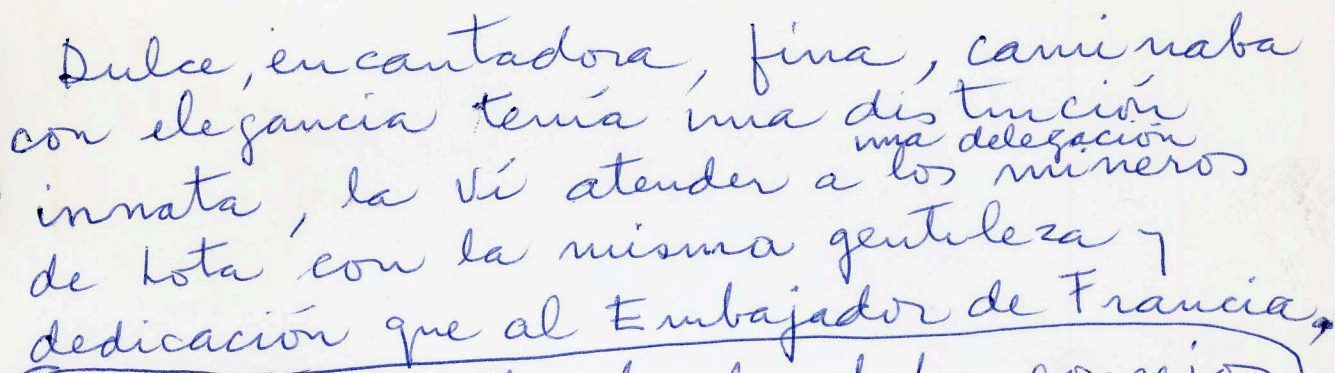 Dulce, encantadora, fina, caminaba
con elegancia tenía una distinción
una delegación
innata, la ví atender a los mineros
de Lota con la misma gentileza y
dedicación que al Embajador de Francia,